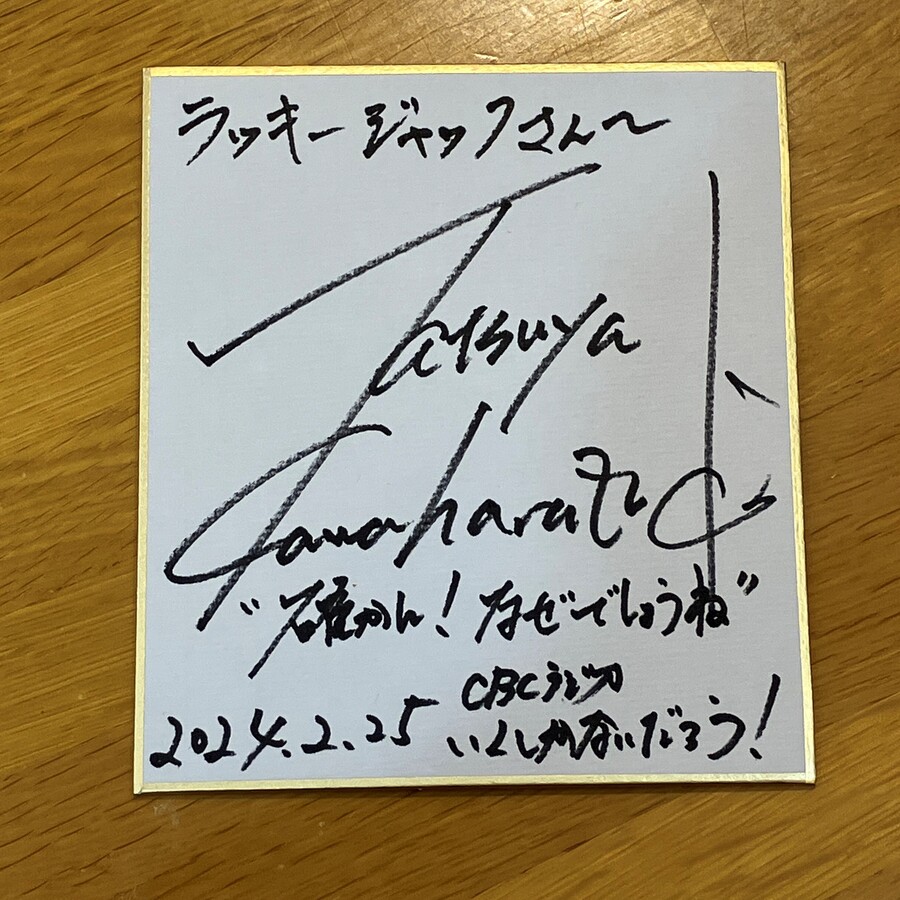 ラッキージャックさんへ
Tatsuya
Kawahara
"確かん!なぜでしょうね"
CBCラジオ
2024.2.25 いくしかないだろう!